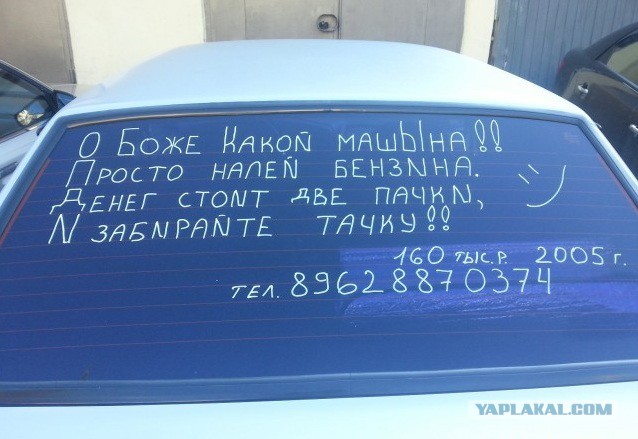 О Боже Какой машЫна!!
Просто налей бензина.
Денег стоит две пачки,
И забирайте тачку!!
160 тыс.р. 2005 г.
тел. 89628870374
YAPLAKAL.COM